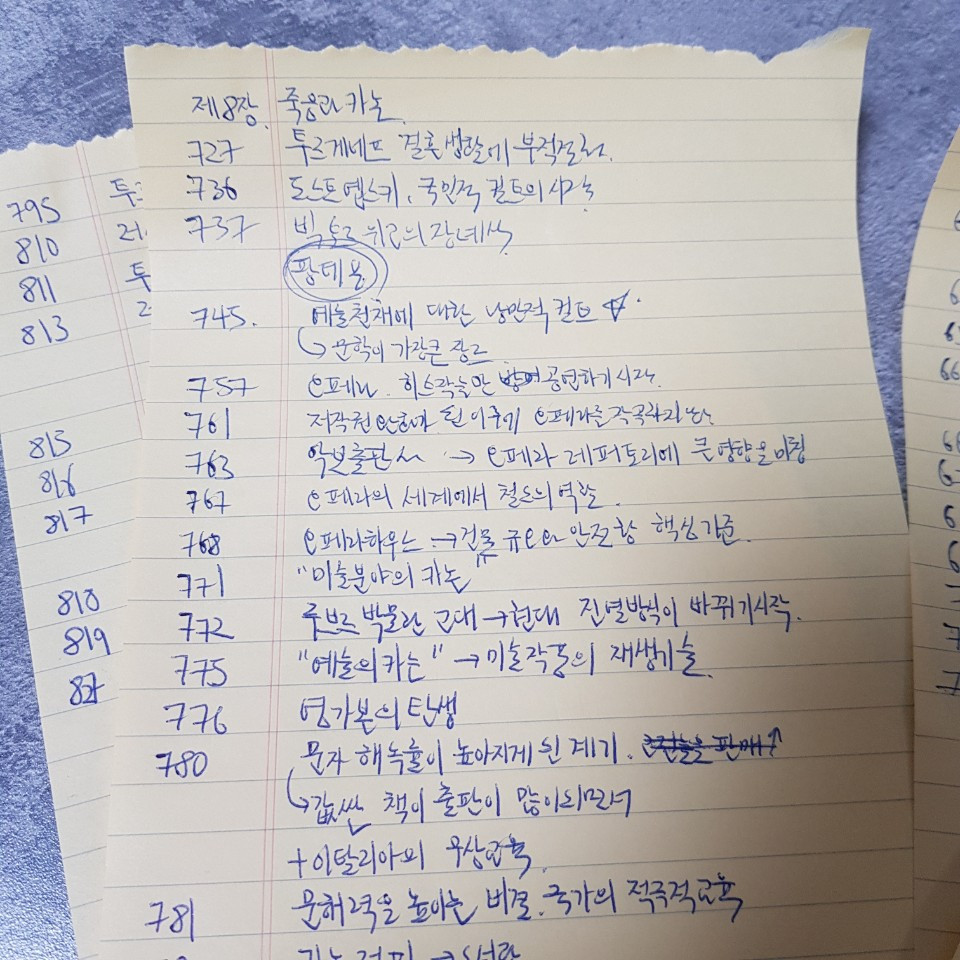 제8장. 죽음과 카논
727 투르게네프 결혼생활에 부적절한.
736 도스토옙스키, 국민적 컬트의 시작
737 빅토르 위고의 장례식
팡테옹
745. 예술천재에 대한 낭만적 컬트
→ 문학이 가장 큰 장르
757 오페라. 히스락을만 공연하기 시작.
761 저작권 된 이후에 오페라를 작곡
763 악보출판사 → 오페라 레퍼토리에 큰 영향을 미침
767 오페라의 세계에서 철도의 역할.
768 오페라하우스 → 건물 규모와 안전함 핵심기준.
771 "미술분야의 카논"
772 루브르 박물관 근대→현대 진열방식이 바뀌기 시작.
775 "예술의 카논" → 미술작품의 재생기술
776 염가본의 탄생
780 문자 해독률이 높아지게 된 계기.
→ 값싼 책이 출판이 많이되면서
+ 이탈리아의 무상교육.
781 문해력을 높이는 비결. 국가의 적극적교육
795 투
810
811 투
813
815
816
817
818
819